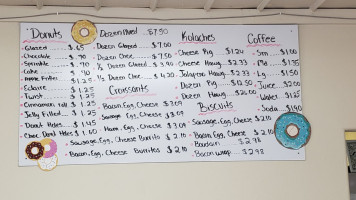 Donuts
Glazed $ .65
Chocolate $ .70
Sprinkle $ .70
Cake $ .90
Fritter $
Eclaire $ 1.25
Twist $ 1.25
Cinnamon roll $ 1.25
Jelly Filled $ 1.25
Donut Holes $ 1.45
Choc Donut Holes $ 1.00
Dozen Mixed $7.50
Dozen Glazed $ 7.00
Dozen Choc. $ 7.50
½ Dozen Glazed $ 3.90
½ Dozen Choc $ 4.20
Croissants
Bacon, Egg, Cheese $ 3.09
Sausage, Egg, Cheese $ 3.09
Ham, Egg, Cheese $ 3.09
Sausage, Egg, Cheese Burrito $ 2.10
Bacon, Egg, Cheese Burritos $ 2.10
Kolaches
Cheese Pig $ 1.20
Cheese Hawg $ 2.33
Jalapeno Hawg $ 2.33
Dozen $
Dozen Hawg $26.00
Biscuits
Sausage, Egg, Cheese $ 2.10
Bacon, Egg, Cheese $ 2.10
Boudain $ 2.98
Bacon wrap $ 2.98
Coffee
Sm $ 1.00
Me $ 1.35
Lg $ 1.50
Juice $ 2.00
Water $ 1.25
Soda $ 1.90